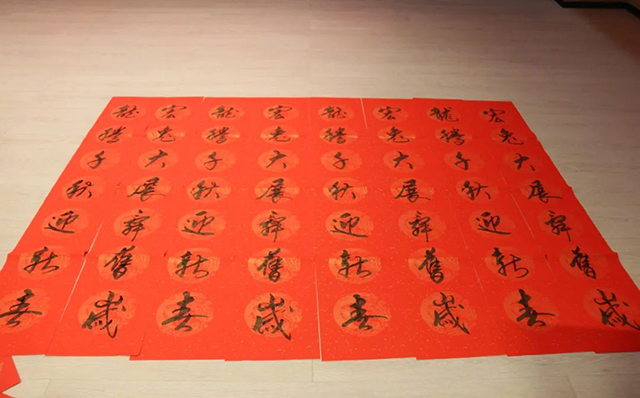 宏兔大展辭舊歲
龍騰千秋迎新春
宏兔大展辭舊歲
龍騰千秋迎新春
宏兔大展辭舊歲
龍騰千秋迎新春
宏兔大展辭舊歲
龍騰千秋迎新春